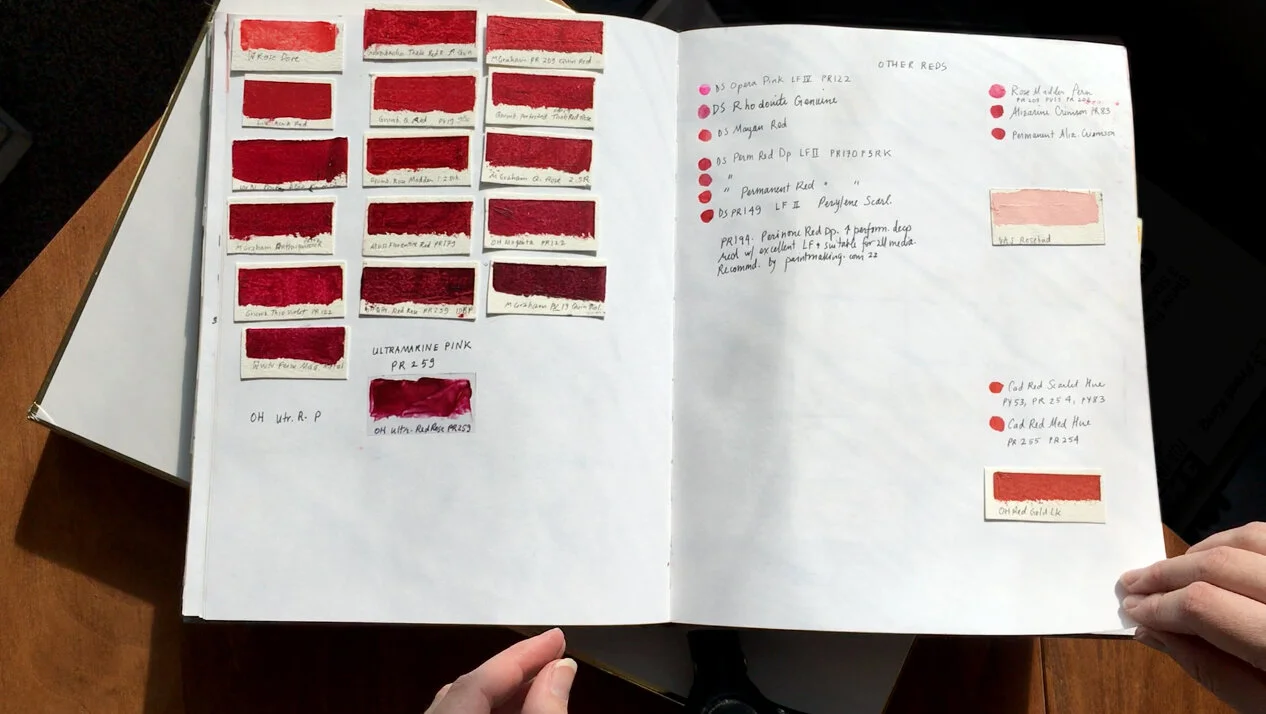 Rose Dore
Grumbacher Thalo Red
M Graham PR 209 Quin Red
Red
Grumb Q. Red PV19
Grumb Thalo Red Rose
Grumb Rose Madder
M Graham Q. Rose
M Graham
Maas Florentine Red PR179
OH Magenta PR122
Grumb Thio Violet PR122
Red Rose PR259
M Graham PV 19 Quin Viol.
ULTRAMARINE PINK
PR 259
OH Ultr. R. P
OH Ultr. Red Rose PR259
OTHER REDS
DS Opera Pink LF IV PR122
DS Rhodonite Genuine
DS Mayan Red
DS Perm Red Dp LF II PR170 F3RK
"
" Permanent Red " "
DS PR149 LF II Perylene Scarl.
PR194. Perinone Red Dp. ↑ perform. deep
red w/ excellent LF + suitable for all media.
Recommd. by paintmaking.com 22
Rose Madder Perm
PR 209 PV19 PR 202
Alizarine Crimson PR83
Permanent Aliz. Crimson
Rosebud
Cad Red Scarlet Hue
PY53, PR 254, PY83
Cad Red Med Hue
PR 255 PR254
OH Red Gold Lk